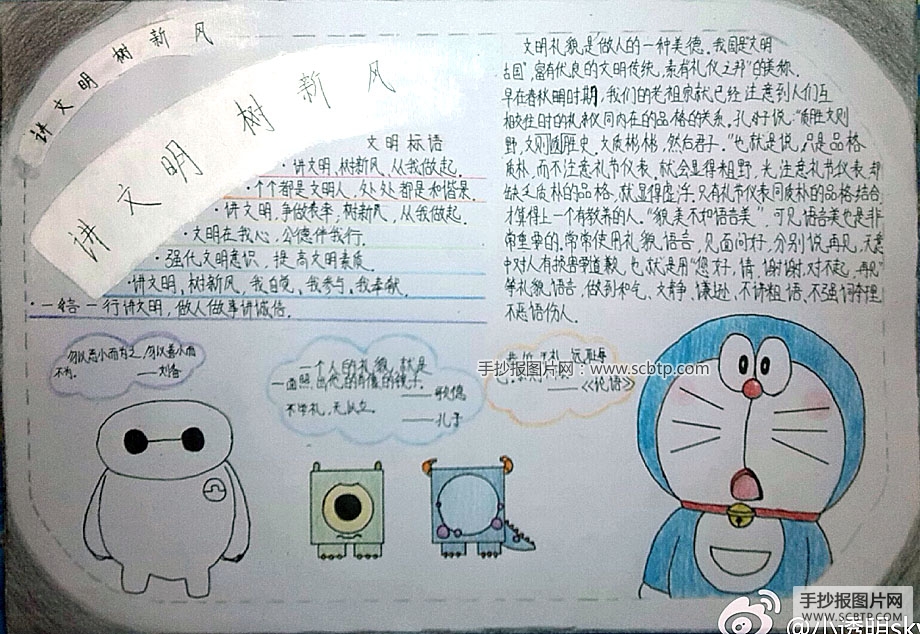 讲文明 树新风
讲文明 树新风
文明标语
·讲文明,树新风、从我做起.
·个个都是文明人,处处都是和谐景.
·讲文明,争做表率,树新风,从我做起.
·文明在我心,公德伴我行.
·强化文明意识,提高文明素质.
·讲文明,树新风,我自觉、我参与、我奉献.
·一言一行讲文明,做人做事讲诚信.
文明礼貌是做人的一种美德。我国是"文明
古国",富有优良的文明传统,素有"礼仪之邦"的美称.
早在春秋时期,我们的老祖家就已经注意到人们互
相交往时的礼仪同内在的品格的关系。孔子说:"质胜文则
野,文则史。文质彬彬,然后君子。"也就是说,只是品格
质朴,而不注意礼节仪表,就会显得粗野,光注意礼节仪表,却
缺乏质朴的品格,就显得虚浮.只有礼节仪表同质朴的品格结合,
才算得上一个有教养的人。"貌美不如语言美",可见,语言美也是非
常重要的,常常使用礼貌语言,见面问好,分别说再见,无意
中对人有损害学道歉,也就是用"您好,请,谢谢,对不起,再见"
等礼貌语言,做到和气、文静、谦逊、不讲粗语、不强词夺理
不恶语伤人.
勿以恶小而为之,勿以善小而
不为.
——刘备
一个人的礼貌,就是
一面照出他的肖像的镜子.
——歌德
不学礼,无以立。
——孔子
恭近于礼,远耻辱
也.
——《论语》
手抄报图片网:www.scbtp.com
手抄报图片网
WWW.SCBTP.COM
@小透明sk